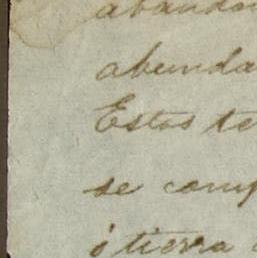 abandon
abunda
Estos te
se comp
ó tierra